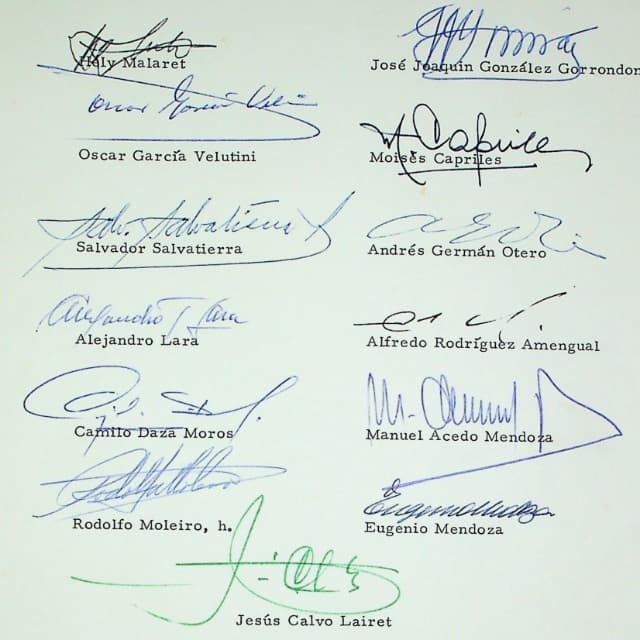 Hely Malaret
José Joaquín González Gorrondon
Oscar García Velutini
Moisés Capriles
Salvador Salvatierra
Andrés Germán Otero
Alejandro Lara
Alfredo Rodríguez Amengual
Camilo Daza Moros
Manuel Acedo Mendoza
Rodolfo Moleiro, h.
Eugenio Mendoza
Jesús Calvo Lairet